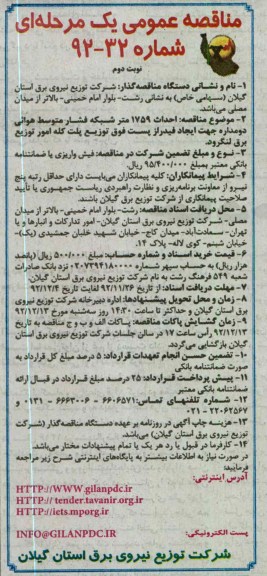 مناقصه عمومی یک مرحله‌ای
شماره ۳۲-۹۲
نوبت دوم
۱- نام و نشانی دستگاه مناقصه‌گذار: شرکت توزیع نیروی برق استان
گیلان (سهامی خاص) به نشانی رشت- بلوار امام خمینی- بالاتر از میدان
مصلی می‌باشد.
۲- موضوع مناقصه: احداث ۱۷۵۹ متر شبکه فشار متوسط هوائی
دومداره جهت ایجاد فیدر از پست فوق توزیع پلت کله امور توزیع
برق لنگرود.
۳- نوع و مبلغ تضمین شرکت در مناقصه: فیش واریزی یا ضمانتنامه
بانکی معتبر بمبلغ ۹۵/۴۰۰/۰۰۰ ریال
۴- شرایط پیمانکاران: کلیه پیمانکاران می‌بایست دارای حداقل رتبه پنج
نیرو از معاونت برنامه‌ریزی و نظارت راهبردی ریاست جمهوری یا تأیید
صلاحیت پیمانکاری از شرکت توزیع برق گیلان باشند.
۵- محل دریافت اسناد مناقصه: رشت- بلوار امام خمینی- بالاتر از میدان
مصلی- شرکت توزیع نیروی برق استان گیلان- امور تدارکات و انبارها و یا
تهران- سعادت‌آباد- میدان کاج- خیابان شهید خلبان جمشیدی (یک)-
خیابان شبنم- کوی لاله- پلاک ۱۴.
۶- قیمت خرید اسناد و شماره حساب: مبلغ ۵۰۰/۰۰۰ ریال (پانصد
هزار ریال) به حساب سپهر شماره ۰۲۰۷۲۹۴۱۸۰۰۰۰ نزد بانک صادرات
شعبه ۵۴۹ فرهنگ رشت به نام شرکت توزیع نیروی برق استان گیلان.
۷- مهلت دریافت اسناد: از تاریخ ۹۲/۱۱/۲۶ لغایت تاریخ ۹۲/۱۲/۴
۸- زمان و محل تحویل پیشنهادها: اداره دبیرخانه شرکت توزیع نیروی
برق استان گیلان و حداکثر تا ساعت ۱۴:۳۰ روز سه‌شنبه مورخ ۹۲/۱۲/۱۳
۹- زمان گشایش پاکات مناقصه: پاکات الف و ب و ج مناقصه به تاریخ
۹۲/۱۲/۱۳ رأس ساعت ۱۷ در سالن جلسات شرکت توزیع نیروی برق استان
گیلان بازگشایی می‌گردد.
۱۰- تضمین حسن انجام تعهدات قرارداد: ۵ درصد مبلغ کل قرارداد به
صورت ضمانتنامه بانکی
۱۱- پیش پرداخت قرارداد: ۲۵ درصد مبلغ قرارداد در قبال ارائه
ضمانتنامه بانکی معتبر
۱۲- شماره تلفنهای تماس: ۶۶۰۶۵۷۱ - ۶۶۶۳۰۰۶ - ۰۱۳۱ و
۲۲۰۶۲۵۶۷ - ۰۲۱
۱۳- هزینه چاپ آگهی در روزنامه بر عهده دستگاه مناقصه‌گذار (شرکت
توزیع نیروی برق استان گیلان) می‌باشد.
۱۴- کارفرما در قبول یا رد هر یک یا تمام پیشنهادات مختار می‌باشد.
در صورت نیاز به اطلاعات بیشتر به پایگاه‌های اینترنتی شرح زیر مراجعه
فرمایید:
آدرس اینترنتی:
HTTP://WWW.gilanpdc.ir
HTTP:// tender.tavanir.org.ir
HTTP://iets.mporg.ir
پست الکترونیکی: INFO@GILANPDC.IR
شرکت توزیع نیروی برق استان گیلان